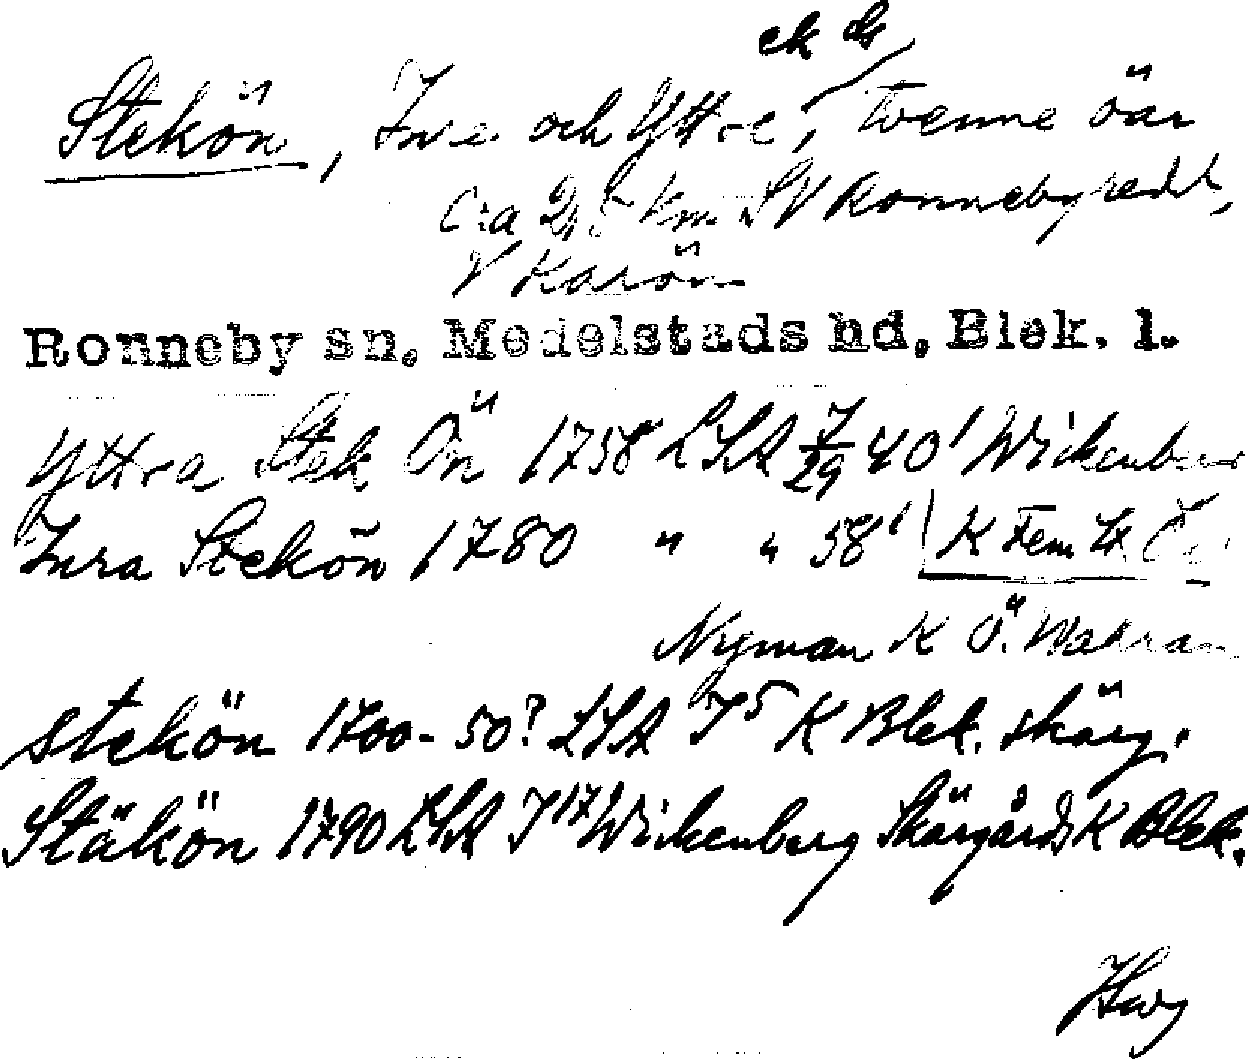 ek ds
Stekön, Inre och Yttre, tvenne öar
Cra 2,5 km SV Ronnebyredd,
V Karön
Ronneby sn, Medelstads hd, Blek. l.
Yttra Stek Ön 1758 LSA 7/29 40' Wickenberg
Inra Stekön 1780 " " 58' K Fem
Nyman K Ö.
Stekön 1700-50? LSA I5 K Blek. skärg.
Stäkön 1790 LSA I17 Wickenberg Skärgårds K Blek.